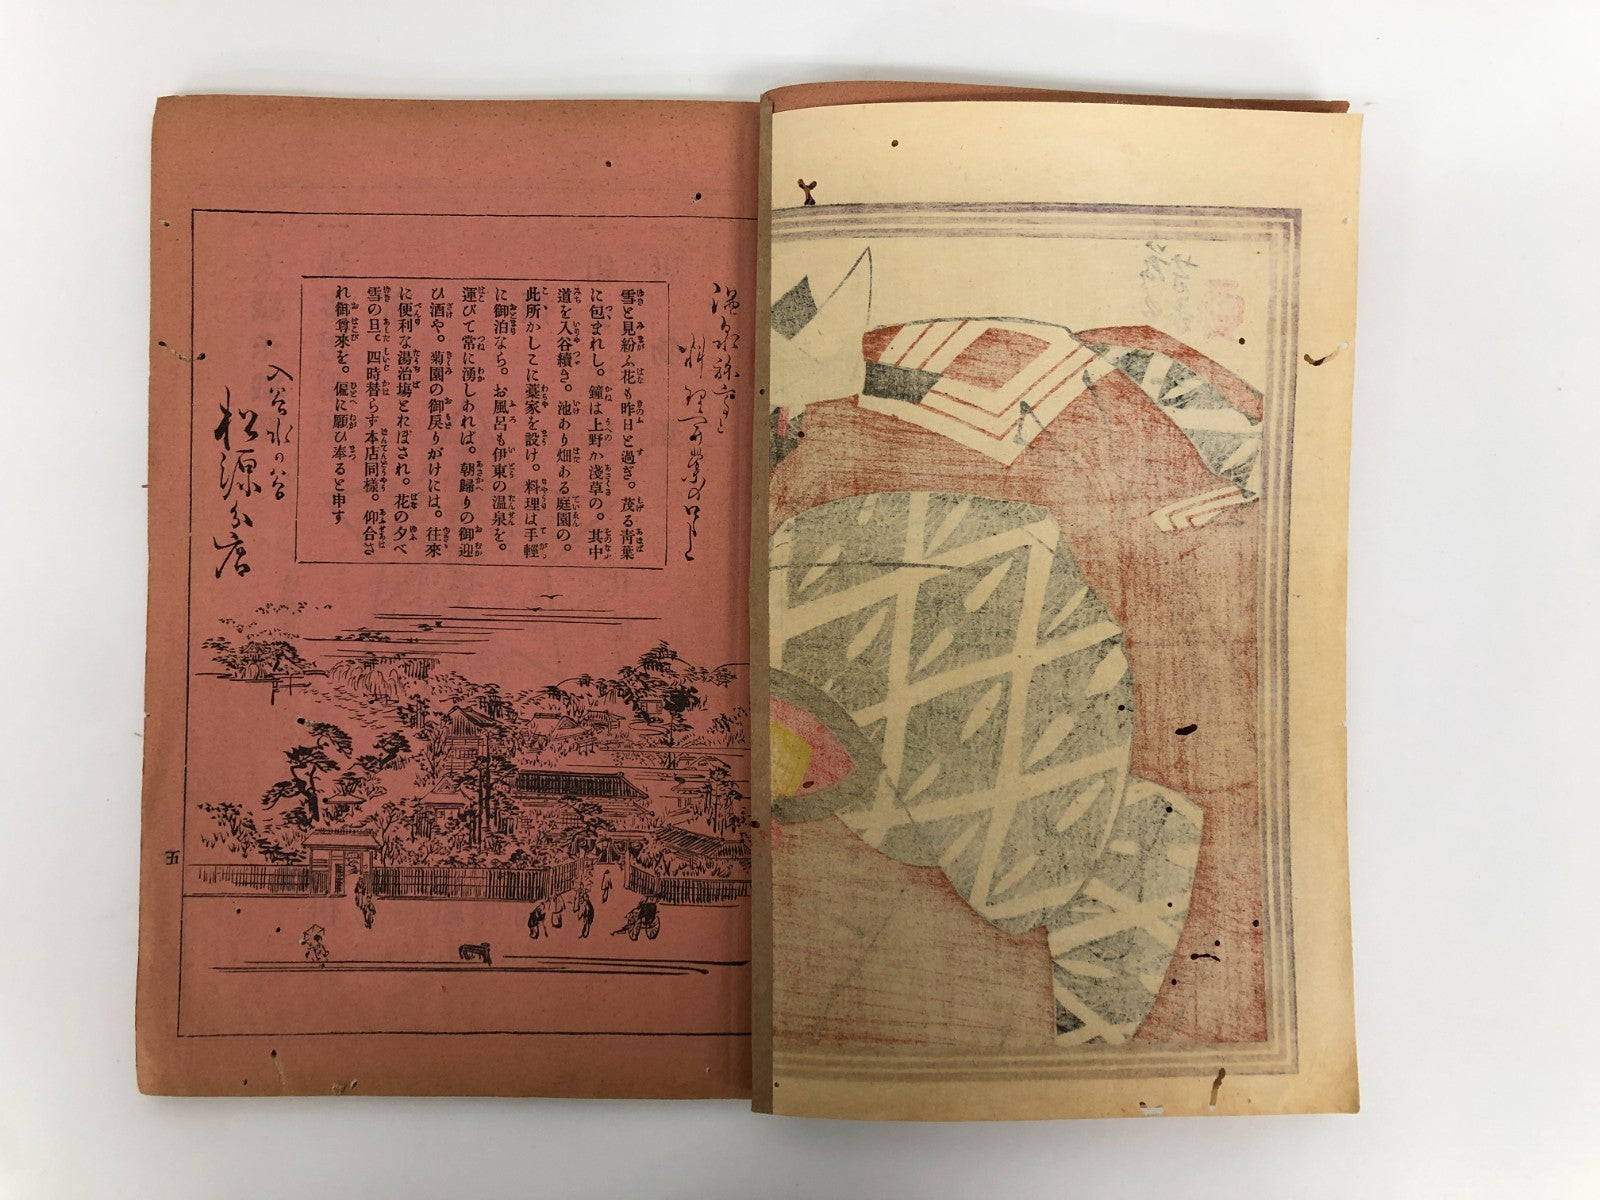 温泉旅亭と
料理開業の口上
雪と見紛ふ花も昨日と過ぎ。茂る青葉
に包まれし。鐘は上野か淺草の。其中
道を入谷續き。池あり畑ある庭園の。
此所かしこに葉家を設け。料理は手輕
に御泊なら。お風呂も伊東の温泉を。
運びて常に湧しあれば。朝歸りの御迎
ひ酒や。菊園の御戻りがけには。往來
に便利な湯治塲とれぼされ。花の夕べ
雪の旦。四時替らず本店同樣。仰合さ
れ御尊來を。偏に願ひ奉ると申す
入谷水の谷
松源分店
正